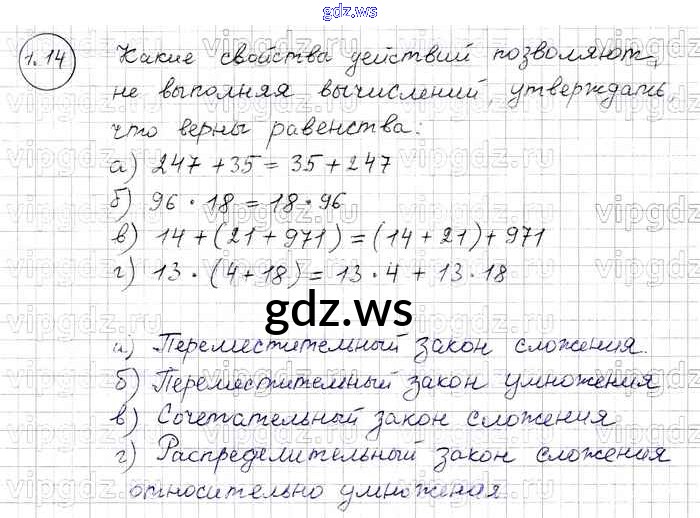 gdz.ws
1.14 Какие свойства действий позволяют,
не выполняя вычислений, утверждать,
что верны равенства:
а) 247 + 35 = 35 + 247
б) 96 · 18 = 18 · 96
в) 14 + (21 + 971) = (14 + 21) + 971
г) 13 · (4 + 18) = 13 · 4 + 13 · 18
gdz.ws
а) Переместительный закон сложения.
б) Переместительный закон умножения
в) Сочетательный закон сложения
г) Распределительный закон сложения
относительно умножения